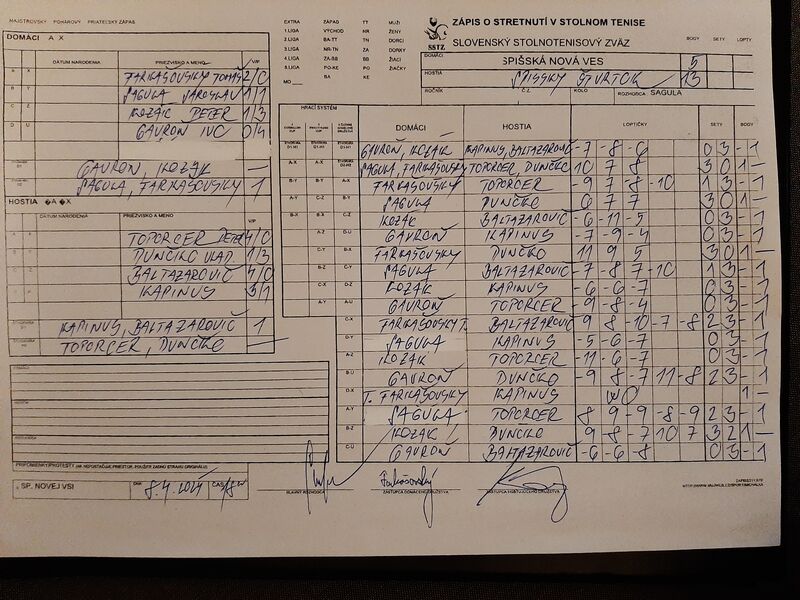 MAJSTROVSKÝ POHÁROVÝ PRIATEĽSKÝ ZÁPAS
EXTRA ZÁPAD TT MUŽI
1.LIGA VÝCHOD NR ŽENY
2.LIGA BA-TT TN DORCI
3.LIGA NR-TN ZA DORKY
4.LIGA ZA-BB BB ŽIACI
5.LIGA PO-KE PO ŽIAČKY
MO BA KE
SSTZ
ZÁPIS O STRETNUTÍ V STOLNOM TENISE
SLOVENSKÝ STOLNOTENISOVÝ ZVÄZ
BODY SETY LOPTY
DOMÁCI SPIŠSKÁ NOVÁ VES 5
HOSTIA SPIŠSKÝ ŠTVRTOK 13
ROČNÍK Č.Z. KOLO ROZHODCA SAGULA
DOMÁCI A X
DÁTUM NARODENIA PRIEZVISKO A MENO V/P
FARKAŠOVSKÝ TOMÁŠ 2/0
SAGULA JAROSLAV 1/1
KOZÁK PETER 1/3
GAVROŇ IVO 0/4
GAVROŇ, KOZÁK —
SAGULA, FARKAŠOVSKÝ 1
HOSTIA �A �X
DÁTUM NARODENIA PRIEZVISKO A MENO V/P
TOPORCER PETER 4/0
DUNČKO VLAD. 1/3
BALTAZAROVIČ 4/0
KAPINUS 3/1
KAPINUS, BALTAZAROVIČ 1
TOPORCER, DUNČKO —
HRACÍ SYSTÉM
DOMÁCI HOSTIA LOPTIČKY SETY BODY
GAVROŇ, KOZÁK KAPINUS, BALTAZAROVIČ -7 -8 -6 0 3 - 1
SAGULA, FARKAŠOVSKÝ TOPORCER, DUNČKO 10 7 8 3 0 1 -
FARKAŠOVSKÝ TOPORCER -9 7 -8 -10 1 3 - 1
SAGULA DUNČKO 6 7 7 3 0 1 -
KOZÁK BALTAZAROVIČ -6 -11 -5 0 3 - 1
GAVROŇ KAPINUS -7 -9 -4 0 3 - 1
FARKAŠOVSKÝ DUNČKO 11 9 5 3 0 1 -
SAGULA BALTAZAROVIČ -7 -8 7 -10 1 3 - 1
KOZÁK KAPINUS -6 -6 -7 0 3 - 1
GAVROŇ TOPORCER -9 -8 -4 0 3 - 1
FARKAŠOVSKÝ T. BALTAZAROVIČ 9 8 -10 -7 -8 2 3 - 1
SAGULA KAPINUS -5 -6 -7 0 3 - 1
KOZÁK TOPORCER -11 -6 -7 0 3 - 1
GAVROŇ DUNČKO -9 8 -7 11 -8 2 3 - 1
T. FARKAŠOVSKÝ KAPINUS WO 1 -
SAGULA TOPORCER 8 9 -9 -8 -9 2 3 - 1
KOZÁK DUNČKO 9 8 -7 -10 7 3 2 1 -
GAVROŇ BALTAZAROVIČ -6 -6 -8 0 3 - 1
PRIPOMIENKY/PROTESTY (AK NEPOSTAČUJE PRIESTOR, POUŽITE ZADNÚ STRANU ORIGINÁLU)
SP. NOVEJ VSI DŇA 8.4.2024 ČAS
HLAVNÝ ROZHODCA
Farkašovský
ZÁSTUPCA DOMÁCEHO DRUŽSTVA
ZÁSTUPCA HOSŤUJÚCEHO DRUŽSTVA